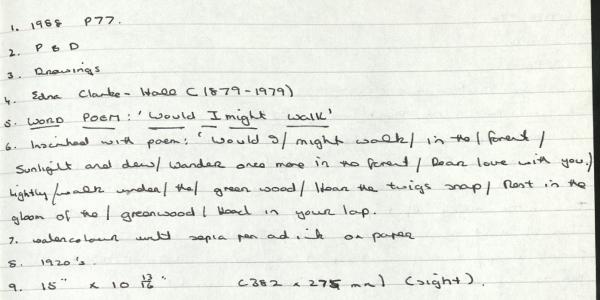 1. 1988 P77.
2. P & D
3. Drawings
4. Edna Clarke-Hall (1879-1979)
5. WORD POEM: 'Would I might walk'
6. Inscribed with poem: 'Would I/ might walk/ in the/ forest/
Sunlight and dew/ Wander once more in the forest/ Dear love with you./
Lightly/walk under/ the/ green wood/ Hear the twigs snap/ Rest in the
gloom of the/ greenwood/ Head in your lap.
7. watercolour with sepia pen and ink on paper
8. 1920's.
9. 15" x 10 13/16" (382 x 275 mm) (sight).